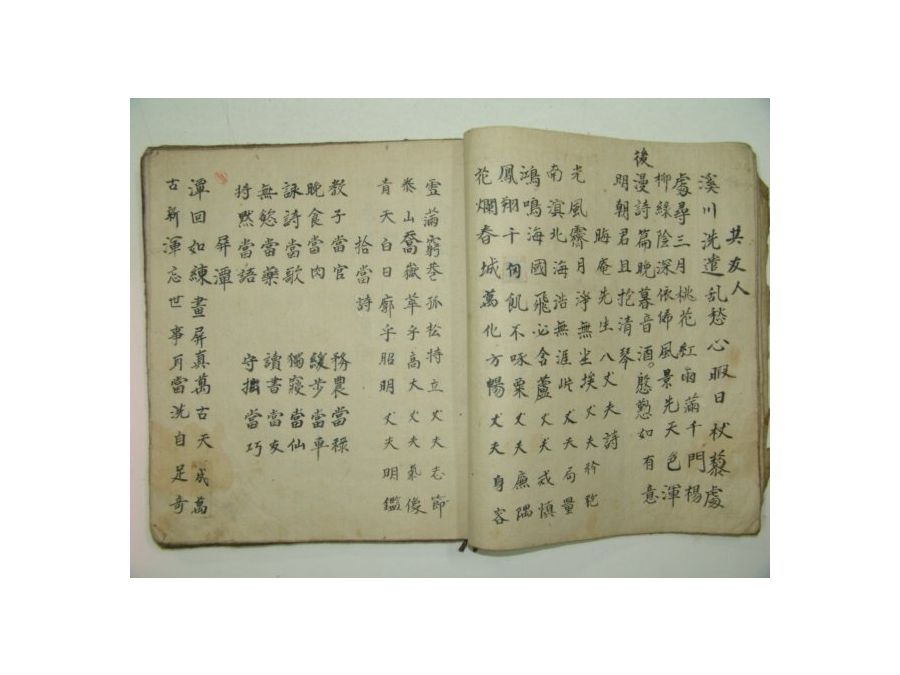 其友人
溪川洗遣乱愁心暇日杖藜處
處尋三月桃花紅雨滿千門楊
柳綠陰深依俙風景先天色渾
漫詩篇晩暮音酒。慇懃如有意
後
明朝君且抱清琴
晦庵先生八丈夫詩
光風霽月淨無尘埃丈夫衿
南滇北海浩無涯丈夫局量
鴻鳴海國飛必含蘆丈夫戒慎
鳳翔千仞飢不啄粟丈夫廉隅
花爛春城萬化方暢丈夫身容
雪滿窮巷孤松特立丈夫志節
泰山喬嶽萃乎高大丈夫氣像
青天白日廓乎昭明丈夫明鑑
拾當詩
教子當官 務農當祿
晩食當肉 緩步當車
詠詩當歌 獨寢當仙
無慾當藥 讀書當友
持默當語 守拙當巧
屏潭
潭回如練畫屏真萬古天成萬
古新渾忘世事月當洗自足奇